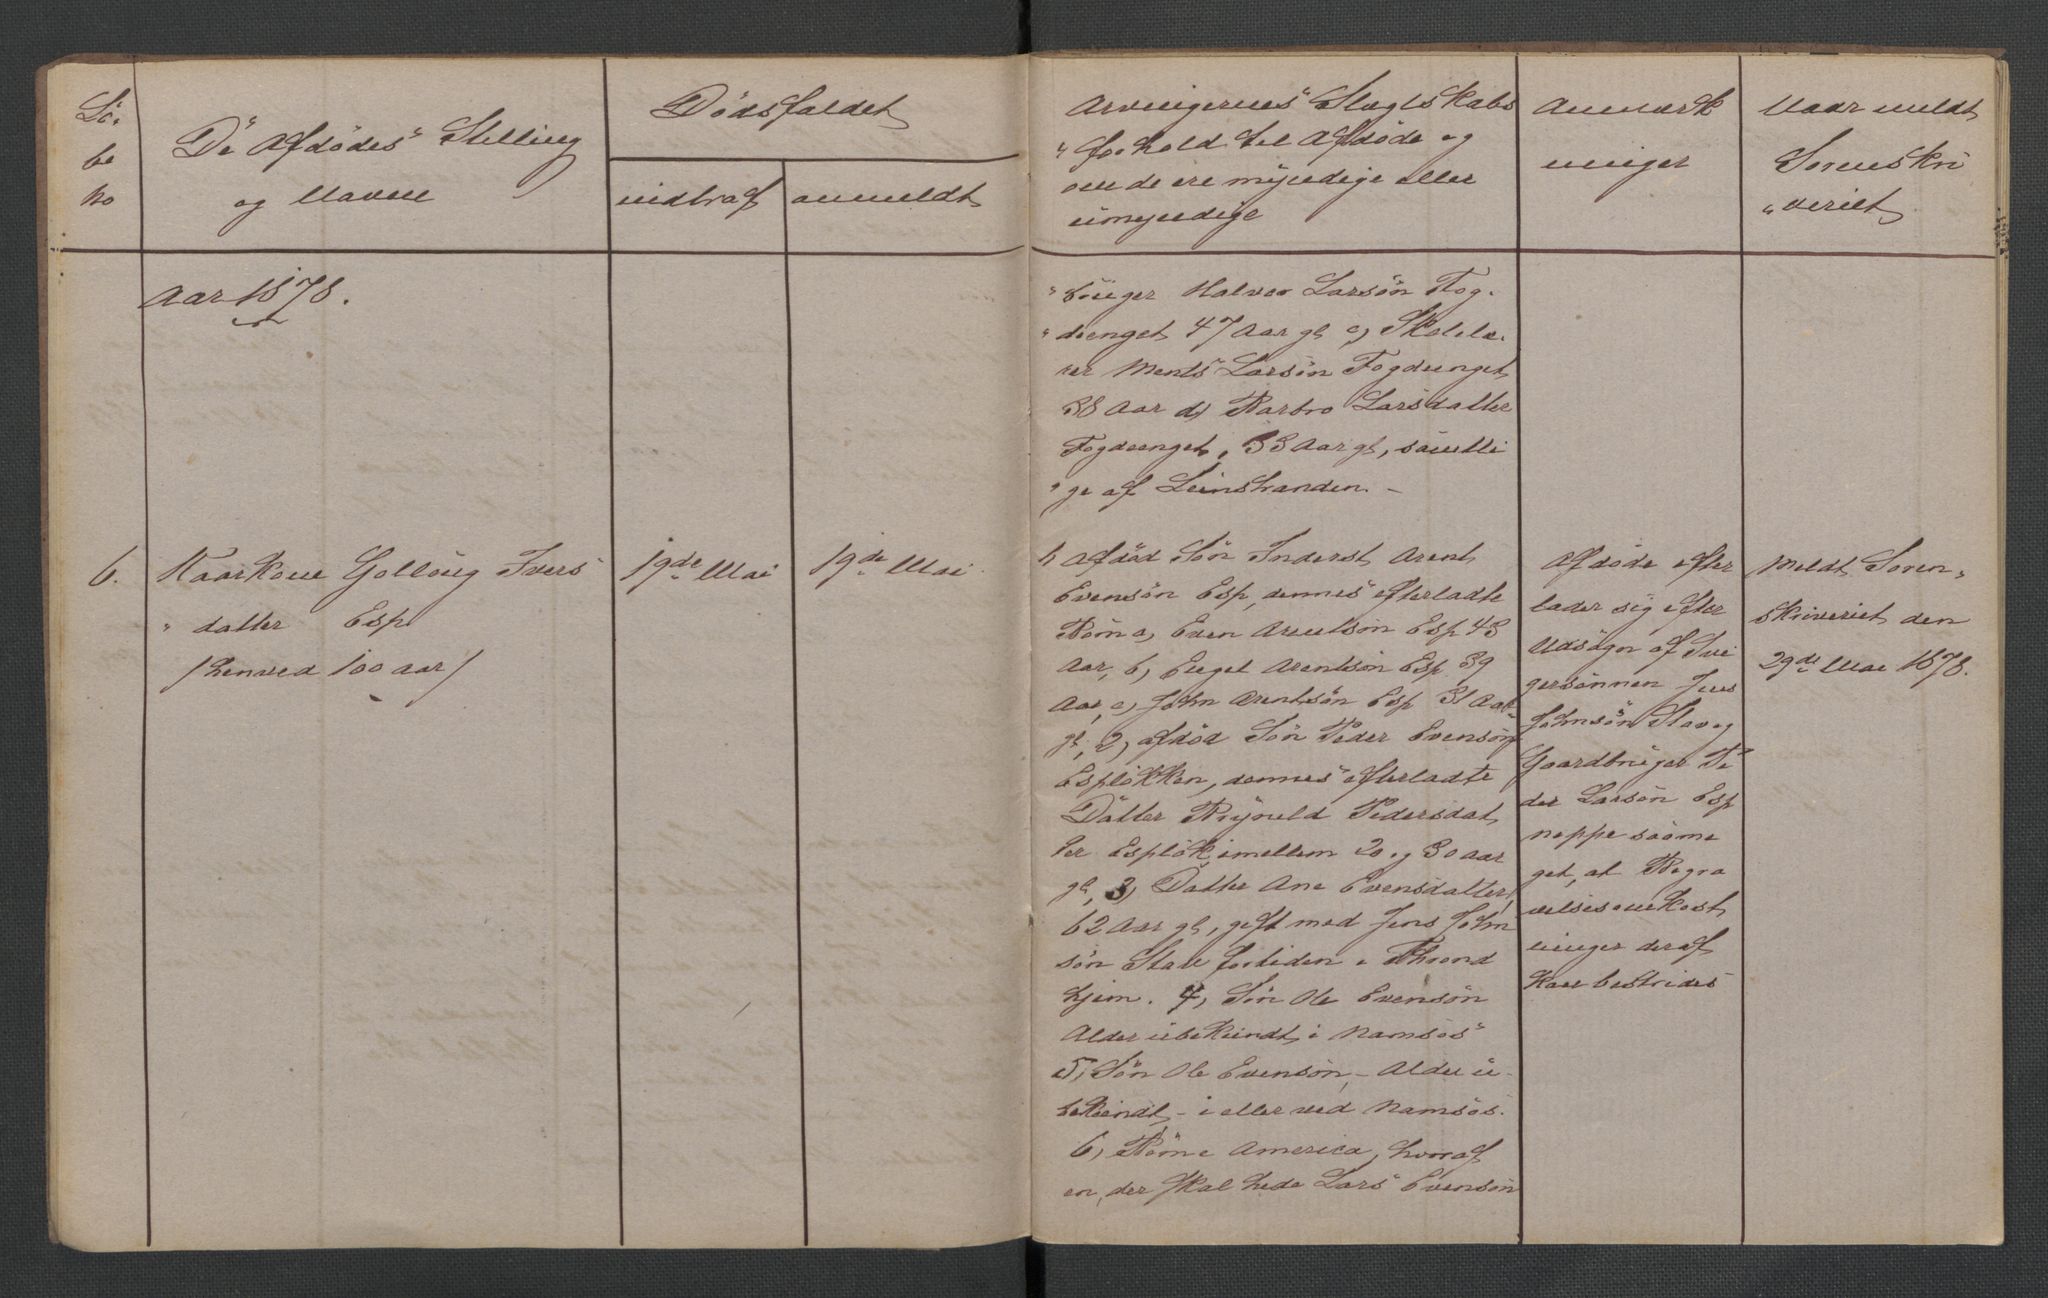 Lö-
be
no
De Afdödes Stilling
og Navne
Dödsfaldet
indtraf
anmeldt
Arvingernes Slægtskabs
"forhold til Afdöde og
om de ere myndige eller
umyndige
Anmærk
ninger
Naar meldt
Sorenskri
"veriet
Aar 1878.
"bruger Halvor Larsön Fog-
"drenget 47 Aar gl c, Skolelæ-
rer Ments Larsön Fogdrenget
38 Aar d, Barbro Larsdatter
Fogdrenget, 33 Aar gl, samtli
"ge af Leinstranden. –
6.
Kaarkone Golloug Ivers
"datter Esp
/henved 100 aar/
19de Mai
19de Mai
1, afdöd Sön Inderst Arent
Evensön Esp, dennes efterladte
Börn a, Even Arentsön Esp 43
Aar, b, Eleget Arentsön Esp 39
Aar, c, John Arentsön Esp 31 Aar
gl, 2, afdöd Sön Peder Evensön
Esplökken, dennes efterladte
Datter Brynild Pedersdat
ter Esplök, imellem 20 og 30 aar
gl, 3, Datter Ane Evensdatter,
62 Aar gl, gift med Jens John
sön Stav fortiden i Thrond
hjem. 4, Sön Ole Evensön
Alder ubekiendt, i Namsos
5, Sön Ole Evensön, – Alder u-
bekiendt, – i eller ved Namsos.
6, Börn i America, hvoraf
en, der skal hede Lars Evensön
Afdöde efter
lader sig efter
Udsagn af Svi
gersönnen Jens
Johnsön Stav og
Gaardbruger Pe
der Larsön Esp
neppe saame
get, at Begra
velsesomkost
ninger deraf
kan bestrides
Meldt Soren"
skriveriet den
29de Mai 1878.